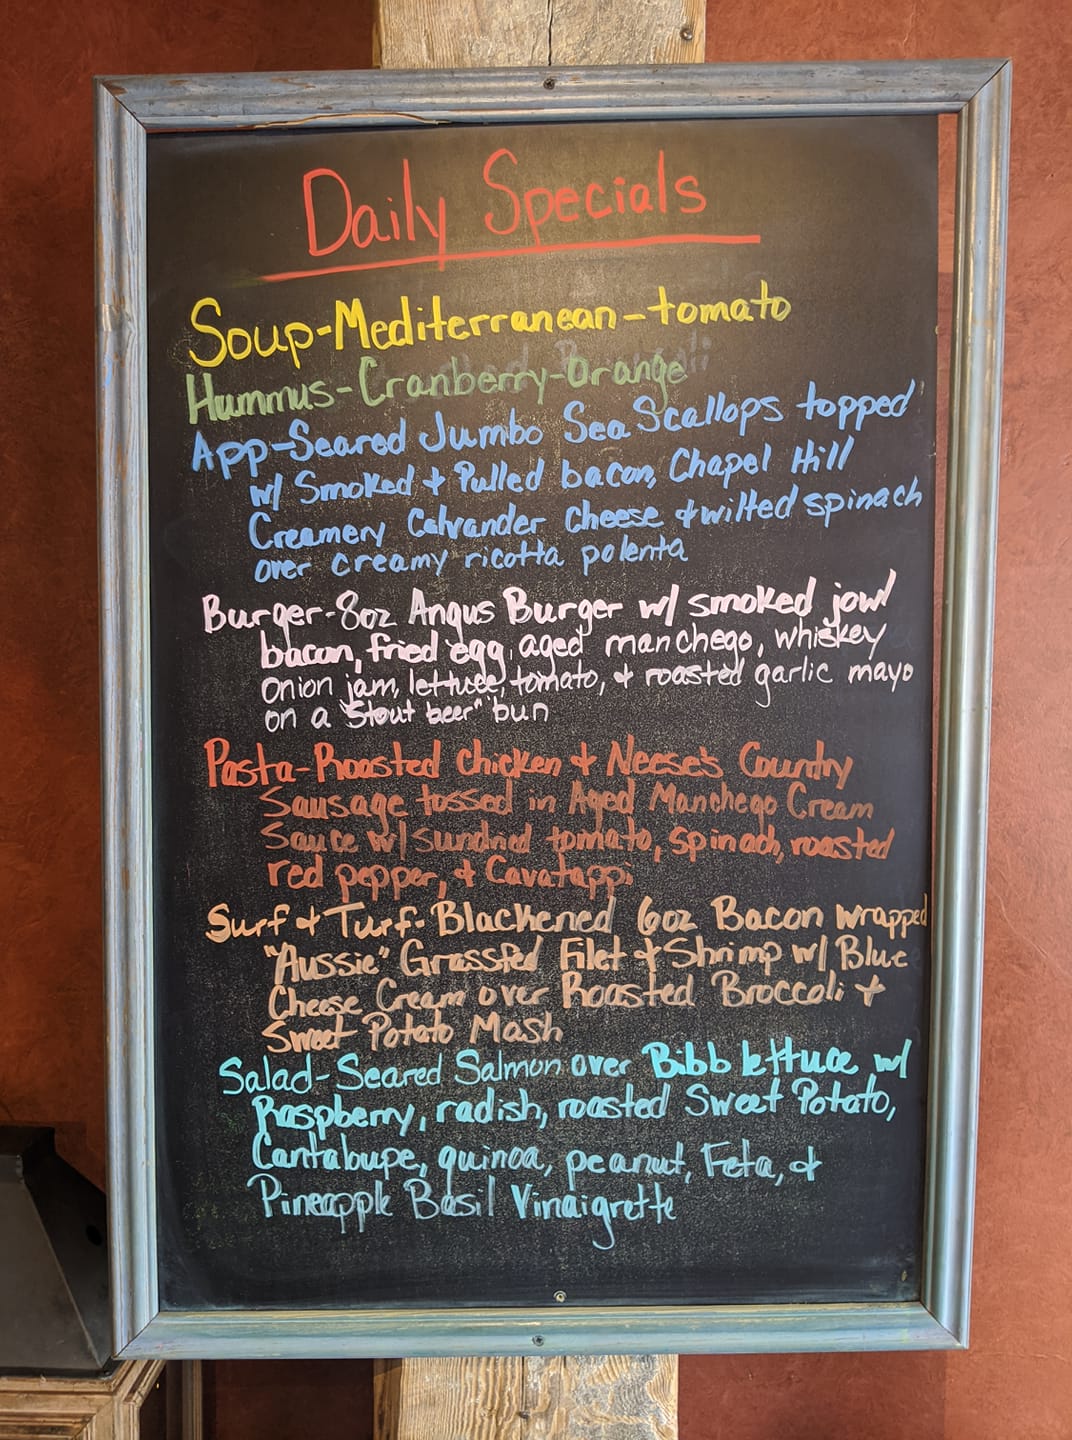 Daily Specials
Soup-Mediterranean-tomato
Hummus-Cranberry-Orange
App-Seared Jumbo Sea Scallops topped
w/ Smoked + Pulled bacon, Chapel Hill
Creamery Calvander cheese + wilted spinach
over creamy ricotta polenta
Burger-8oz Angus Burger w/ smoked jowl
bacon, fried egg, aged manchego, whiskey
onion jam, lettuce, tomato, + roasted garlic mayo
on a "Stout beer" bun
Pasta-Roasted chicken + Neese's Country
Sausage tossed in Aged Manchego Cream
Sauce w/ sundried tomato, spinach, roasted
red pepper, + Cavatappi
Surf + Turf- Blackened 6oz Bacon wrapped
"Aussie" Grassfed Filet + Shrimp w/ Blue
Cheese Cream over Roasted Broccoli +
Sweet Potato Mash
Salad-Seared Salmon over Bibb lettuce w/
Raspberry, radish, roasted Sweet Potato,
Cantaloupe, quinoa, peanut, Feta, +
Pineapple Basil Vinaigrette